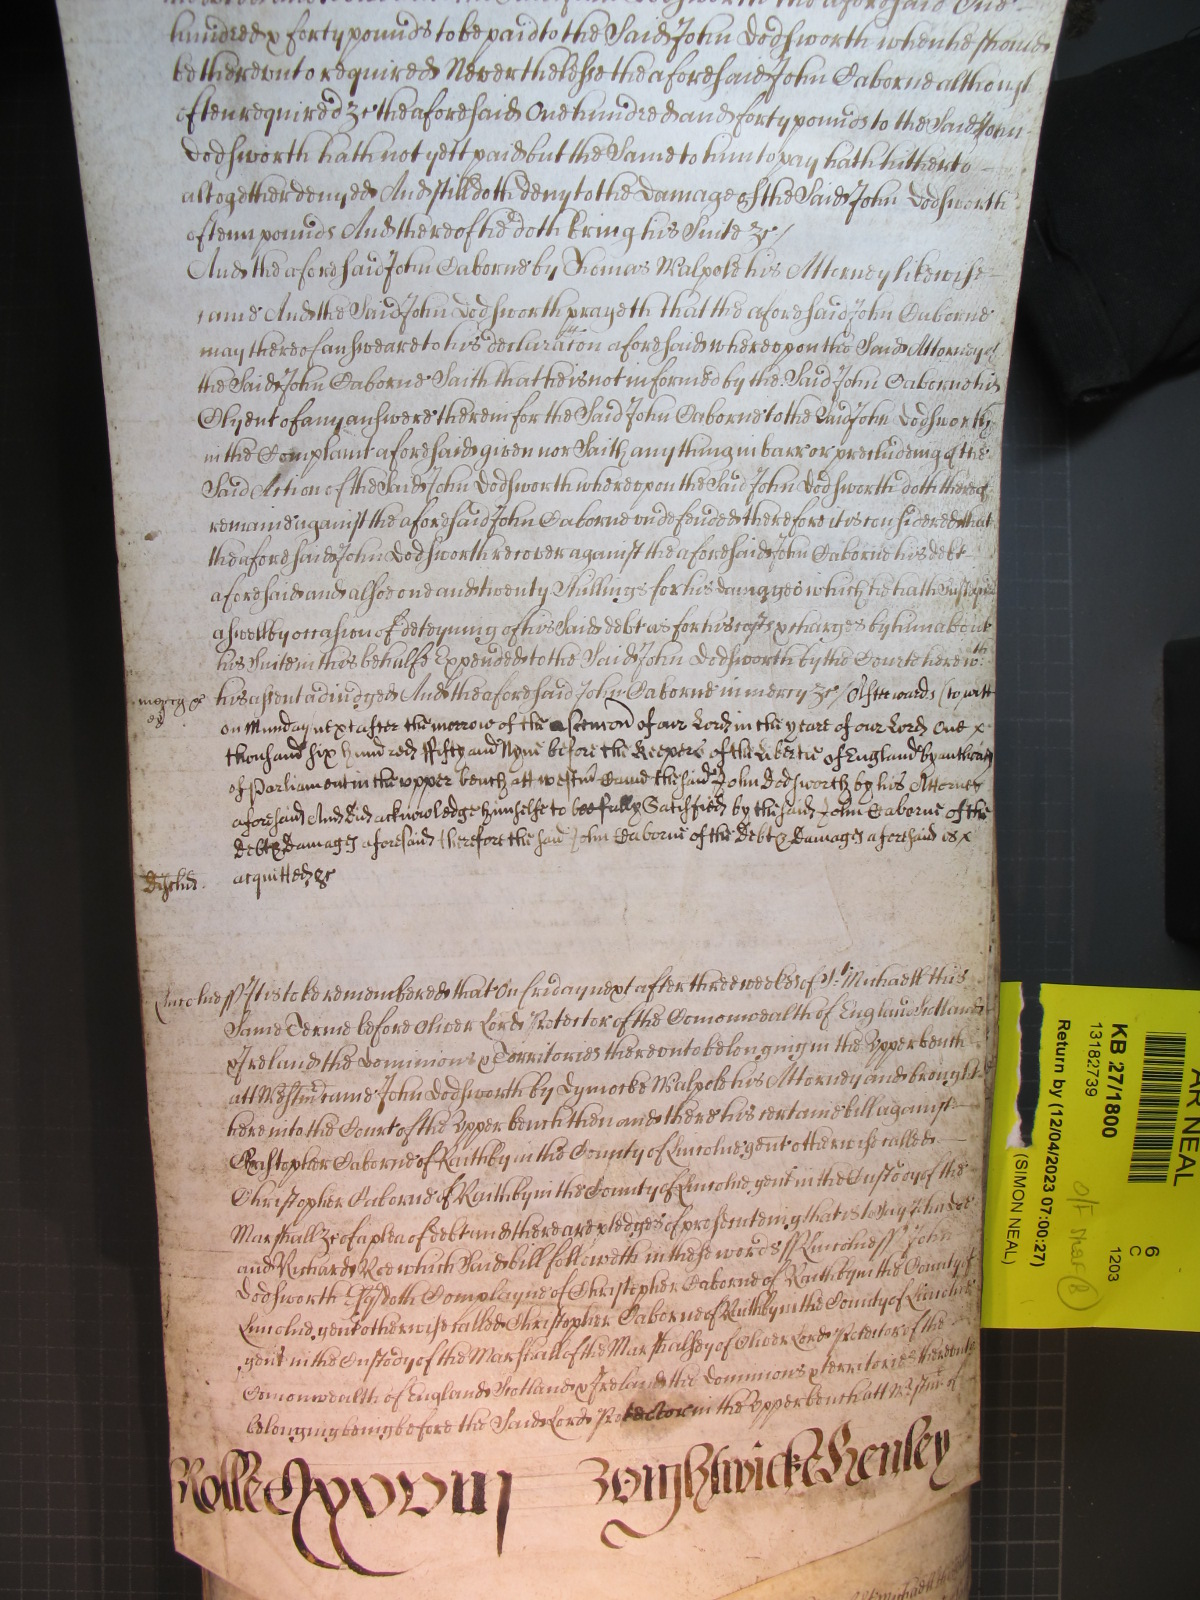 hundred & forty pounds to be paid to the Said John Dodsworth when he should
be thereunto required Neverthelesse the aforesaid John Oaborne although
often required &c the aforesaid One hundred and forty pounds to the Said John
Dodsworth hath not yett paid but the Same to him to pay hath hitherto
altogether denyed And still doth deny to the Damage of the Said John Dodsworth
of tenn pounds And thereof hee doth bring his Suite &c /
And the aforesaid John Oaborne by Thomas Walpole his Attorney likewise
came And the Said John Dodsworth prayeth that the aforesaid John Oaborne
may thereof answeare to his declaracon aforesaid whereopon the Said Attorney of
the Said John Oaborne Saith that he is not informed by the Said John Oaborne his
Clyent of any answere therein for the Said John Oaborne to the Said John Dodsworth
in the Complaint aforesaid given nor Saith any thing in barr or precludeing of the
Said Action of the Said John Dodsworth whereopon the Said John Dodsworth doth thereof
remaine against the aforesaid John Oaborne undefended therefore it is considered that
the aforesaid John Dodsworth recover against the aforesaid John Oaborne his debt
aforesaid and alsoe one and twenty Shillings for his damages which he hath Susteyned
aswell by occasion of deteyning of his Said debt as for his costs & charges by him about
his Suite in this behalfe Expended to the Said John Dodsworth by the Courte here wth
mercy &c
his assent adiudged And the aforesaid John Oaborne in mercy &c / Afterwards (to witt
on Munday next after the morrow of the Ascencon of our Lord in the yeare of our Lord One x
thousand six hundred ffifty and Nyne before the Keepers of the Libertie of England by authority
of Parliament in the upper bench att Westmr Came the said John Dodsworth by his Attorney
aforesaid And did acknowledge himselfe to bee fully Satisfied by the said John Oaborne of the
Debt & Damages aforesaid therefore the said John Oaborne of the Debt & Damages aforesaid is x
acquitted &c
Lincolne ss It is to be remembered that On friday next after three weekes of St. Michaell this
Same Terme before Oliver Lord Protector of the Comonwealth of England Scotland
& Ireland & the Dominions & Territories thereonto belonging in the Upper bench
att Westmr came John Dodsworth by Dymocke Walpole his Attorney and brought
here into the Court of the Upper bench then and there his certaine bill against
Christopher Oaborne of Raithby in the County of Lincolne gent otherwise called
Christopher Oaborne of Raithby in the County of Lincolne gent in the Custody of the
Marshall &c of a plea of debt and there are pledges of prosecuteing that is to Say John Doe
and Richard Roe which Said bill followeth in these words ss Lincolne ss John
Dodsworth Esq doth Complayne of Christopher Oaborne of Raithby in the County of
Lincolne gent otherwise called Christopher Oaborne of Raithby in the County of Lincolne
gent in the Custody of the Marshall of the Marshallsey of Oliver Lord Protector of the
Comonwealth of England Scotland & Ireland & the Dominions & territories thereunto
belonging being before the Said Lord Protector in the Upper bench att Westmr of
Rolle Cxxviii Zouch Wicke & Henley
AR NEAL
KB 27/1800
13182739
Return by (12/04/2023 07:00:27)
(SIMON NEAL)
6
C
1203